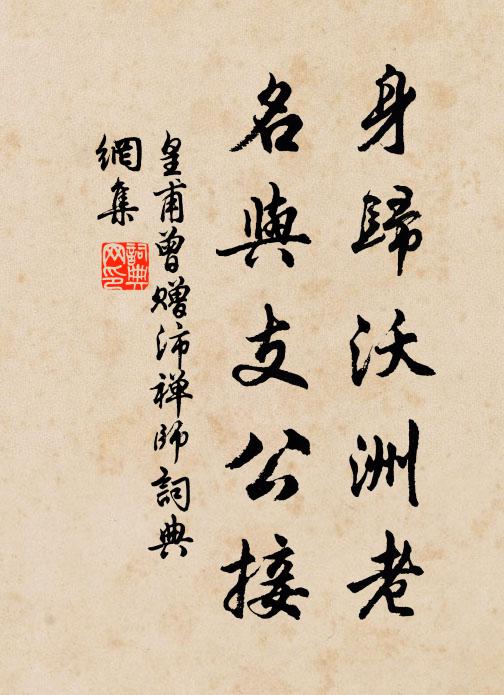 身歸沃洲老
名與支公接
皇甫曾贈沛禪師詞典
網集
詞典
网印